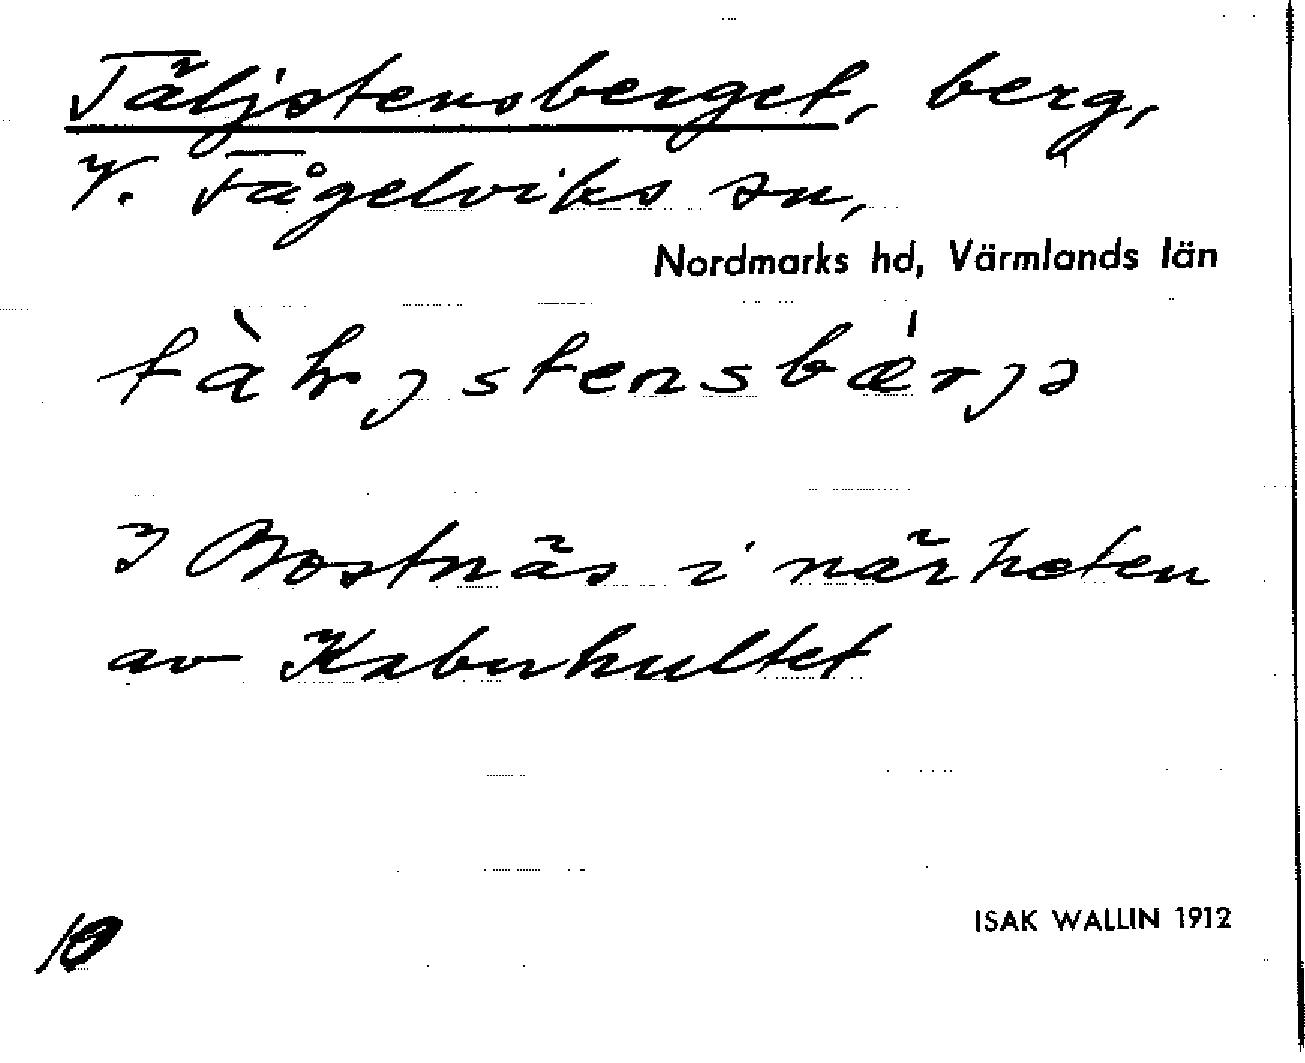 Täljstensberget, berg,
V. Fågelviks sn,
Nordmarks hd, Värmlands län
I Bostnäs i närheten
av Kabuhultet
ISAK WALLIN 1912
10